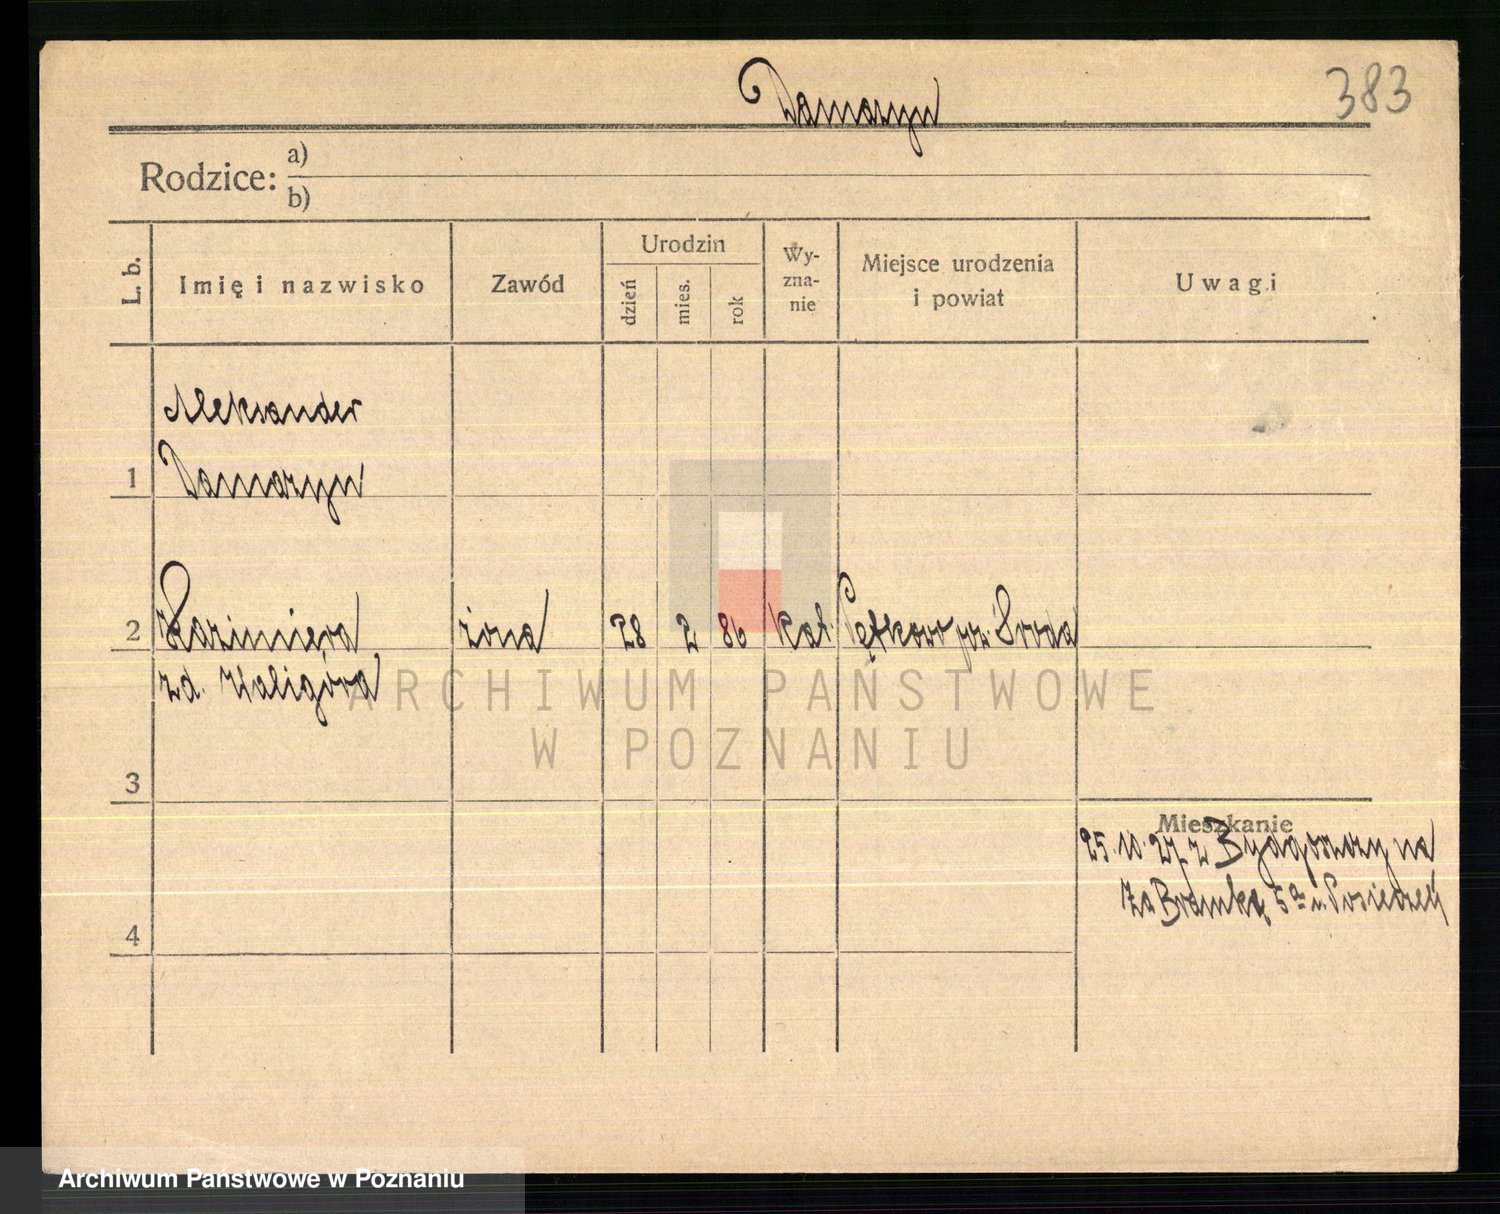 383
Damazyn
Rodzice: a)
b)
L. b.
Imię i nazwisko
Zawód
Urodzin
dzień
mies.
rok
Wy-
zna-
nie
Miejsce urodzenia
i powiat
Uwagi
Aleksander
1 Damazyn
2 Kazimiera żona 28 2 86 kat. Pętkowo pow. Środa
zd. Kaligóra
ARCHIWUM PAŃSTWOWE
W POZNANIU
3
Mieszkanie
25.10.27 z Bydgoszczy na
Za Bramką 5a u. Posiedzeń
4
Archiwum Państwowe w Poznaniu